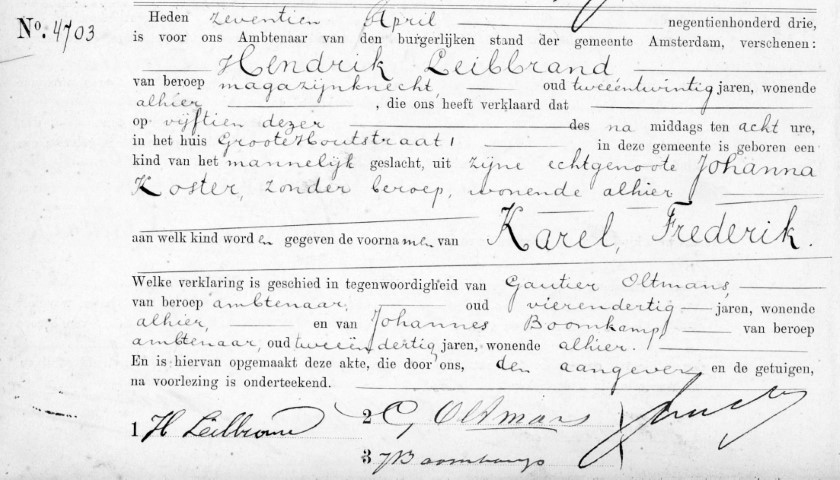 No. 4703
Heden zeventien April negentienhonderd drie,
is voor ons Ambtenaar van den burgerlijken stand der gemeente Amsterdam, verschenen:
Hendrik Leibbrand
van beroep magazijnknecht, oud tweeëntwintig jaren, wonende
alhier, die ons heeft verklaard dat
op vijftien dezer des na middags ten acht ure,
in het huis Groote Houtstraat 1 in deze gemeente is geboren een
kind van het mannelijk geslacht, uit zijne echtgenoote Johanna
Koster, zonder beroep, wonende alhier
aan welk kind worden gegeven de voornamen van Karel, Frederik.
Welke verklaring is geschied in tegenwoordigheid van Gautier Oltmans,
van beroep ambtenaar, oud vierendertig jaren, wonende
alhier, en van Johannes Boomkamp van beroep
ambtenaar, oud tweeëndertig jaren, wonende alhier.
En is hiervan opgemaakt deze akte, die door ons, den aangever en de getuigen,
na voorlezing is onderteekend.
1 H Leibbrand 2 G Oltmans
3 J Boomkamp